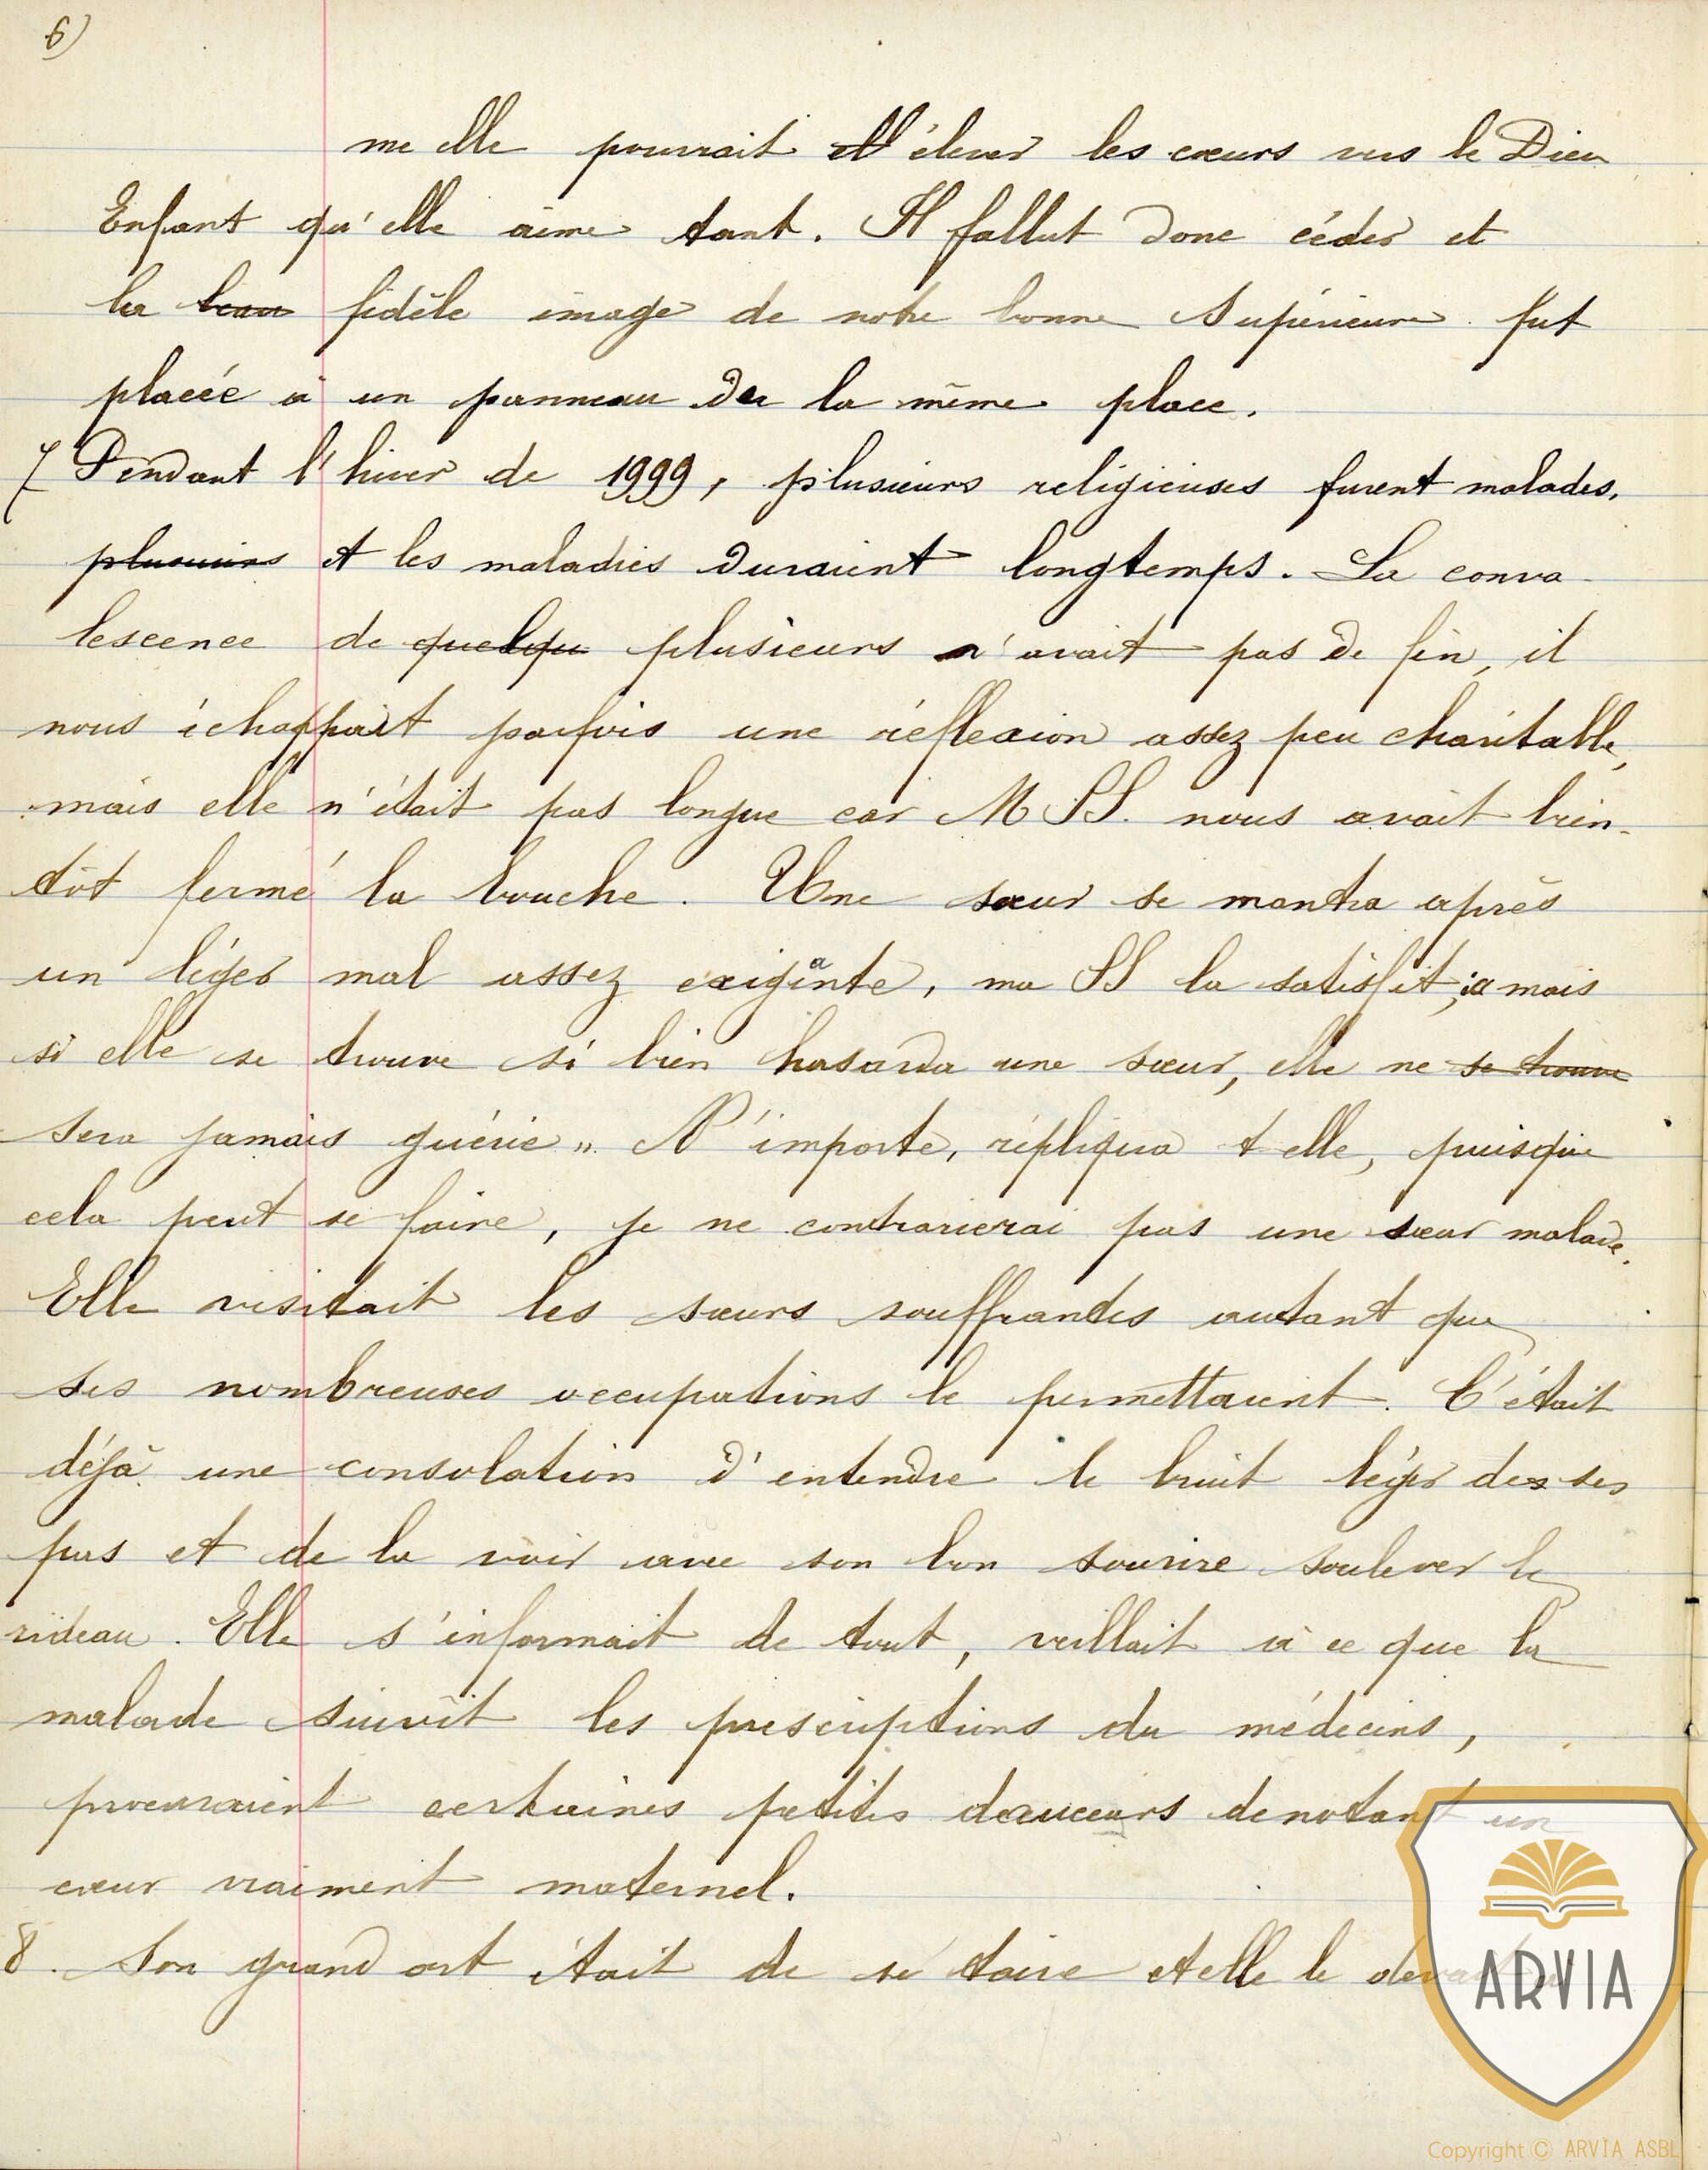 6)
me elle pourrait élever les cœurs vers le Dieu
Enfant qu'elle aime tant. Il fallut donc céder et
la beau fidèle image de notre bonne Supérieure fut
placée à un panneau de la même place.
7 Pendant l'hiver de 1999, plusieurs religieuses furent malades,
plusieurs et les maladies duraient longtemps. La conva
lescence de quelqu plusieurs n'avait pas de fin, il
nous échappait parfois une réflexion assez peu charitable,
mais elle n'était pas longue car M SS. nous avait bien-
tôt fermé la bouche. Une sœur se montra après
un léger mal assez exigante, ma SS la satisfit; mais
si elle se trouve si bien hasarda une sœur, elle ne se trouve
sera jamais guérie". N'importe, répliqua t elle, puisque
cela peut se faire, je ne contrarierai pas une sœur malade.
Elle visitait les sœurs souffrantes autant que
ses nombreuses occupations le permettaient. C'était
déjà une consolation d'entendre le bruit léger de ses
pas et de la voir avec son bon sourire soulever le
rideau. Elle s'informait de tout, veillait à ce que la
malade suivît les prescriptions du médecins,
procuraient certaines petites douceurs denotant un
cœur vraiment maternel.
8. Son grand art était de se taire et elle le
ARVIA
Copyright © ARVIA ASBL